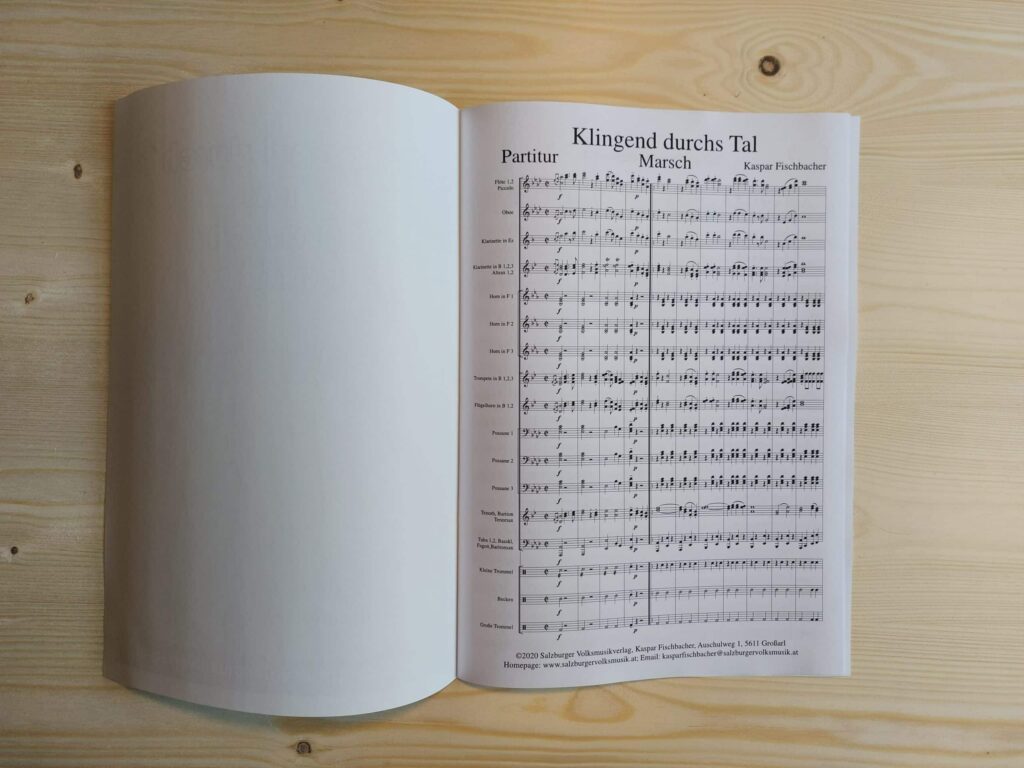 Klingend durchs Tal
Partitur
Marsch
Kaspar Fischbacher
Flöte 1,2
Piccolo
Oboe
Klarinette in Es
Klarinette in B 1,2,3
Altsax 1,2
Horn in F 1
Horn in F 2
Horn in F 3
Trompete in B 1,2,3
Flügelhorn in B 1,2
Posaune 1
Posaune 2
Posaune 3
Tenorh, Bariton
Tenorsax
Tuba 1,2, Basskl,
Fagott, Baritonsax
Kleine Trommel
Becken
Große Trommel
©2020 Salzburger Volksmusikverlag, Kaspar Fischbacher, Auschulweg 1, 5611 Großarl
Homepage: www.salzburgervolksmusik.at; Email: kasparfischbacher@salzburgervolksmusik.at